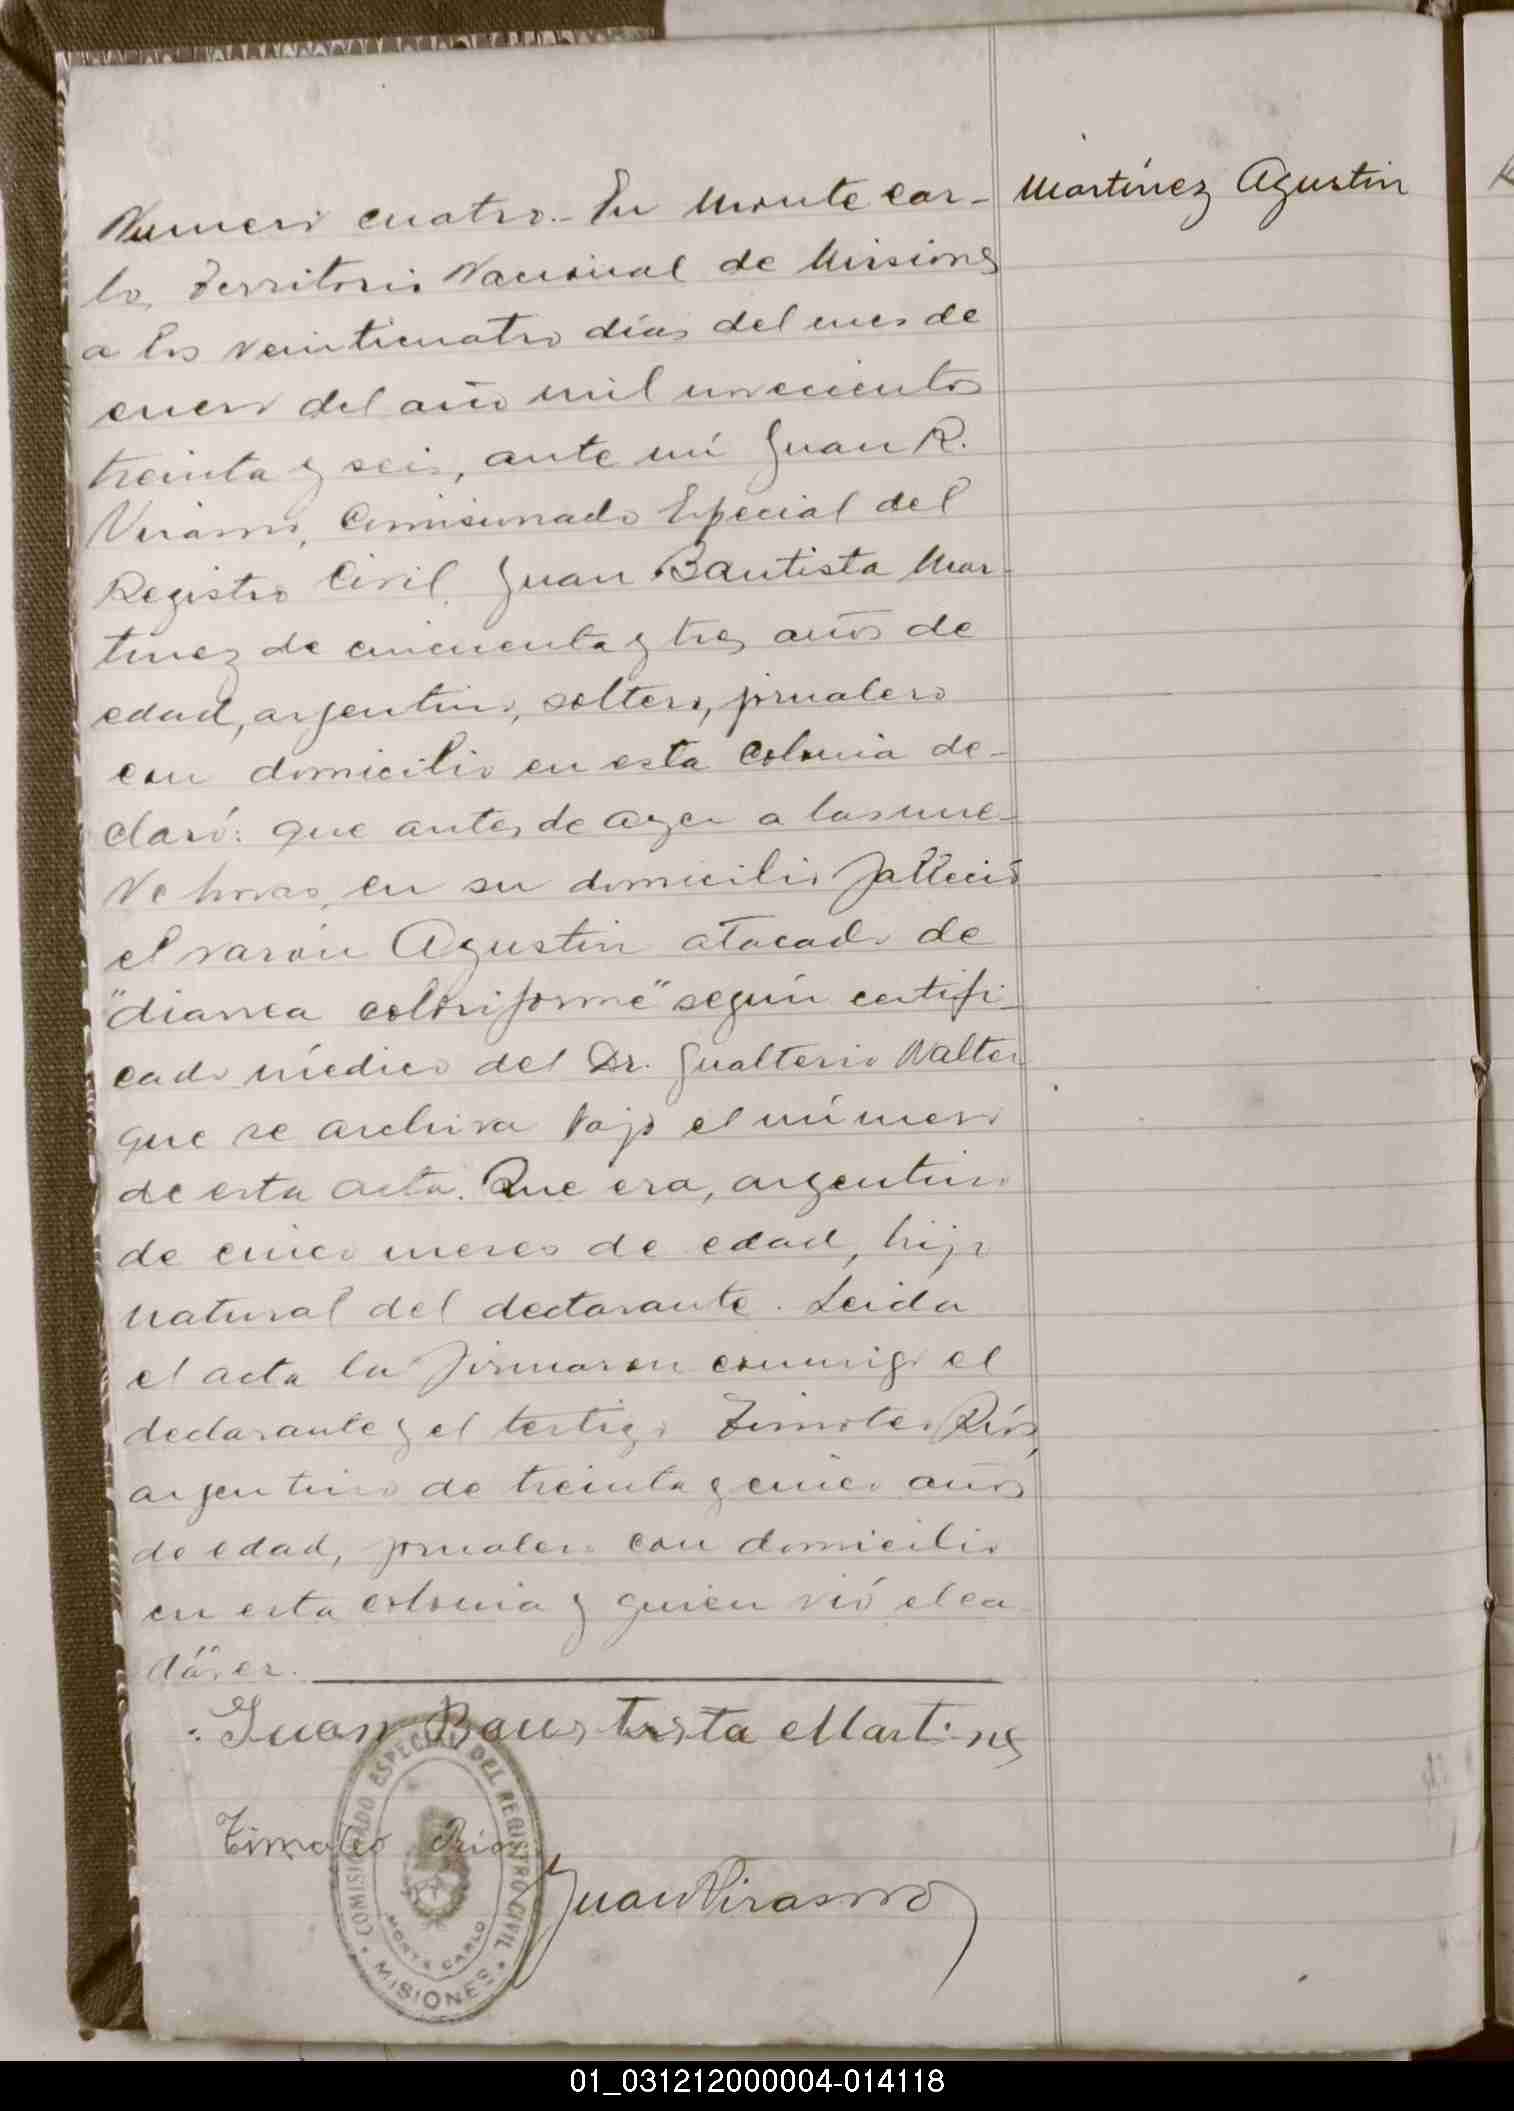 Martínez Agustin
Numero cuatro.- En Monte car-
lo, Territorio Nacional de Misiones
a los veinticuatro días del mes de
enero del año mil novecientos
treinta y seis, ante mí Juan R.
Virasoro, Comisionado Especial del
Registro Civil, Juan Bautista Mar-
tinez de cincuenta y tres años de
edad, argentino, soltero, jornalero
con domicilio en esta Colonia de-
claró: que antes de ayer a las nue-
ve horas, en su domicilio falleció
el varón Agustin atacado de
"diarrea coleriforme" según certifi-
cado médico del Dr. Gualterio Walter
que se archiva bajo el número
de esta acta. Que era, argentino
de cinco meses de edad, hijo
natural del declarante. Leida
el acta la firmaron conmigo el
declarante y el testigo Timoteo Ríos,
argentino de treinta y cinco años
de edad, jornalero con domicilio
en esta colonia y quien vió el ca
dáver.
Juan Baustista Martines
Timoteo Rios
Juan Virasoro
COMISIONADO ESPECIAL DEL REGISTRO CIVIL
MONTE CARLO
MISIONES
01_031212000004-014118